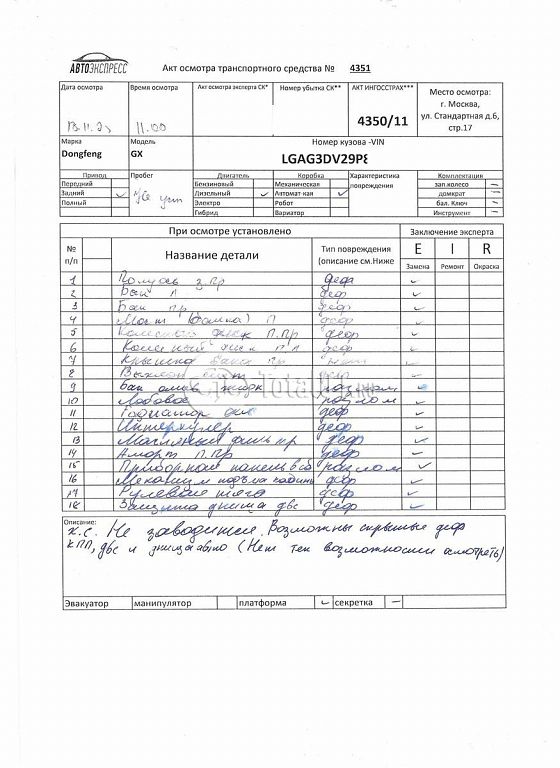 АВТОЭКСПРЕСС
Акт осмотра транспортного средства № 4351
Дата осмотра Время осмотра Акт осмотра эксперта СК* Номер убытка СК** АКТ ИНГОССТРАХ*** Место осмотра:
г. Москва,
11.00 4350/11 ул. Стандартная д.6,
стр.17
Марка Модель Номер кузова -VIN
Dongfeng GX LGAG3DV29P8
Привод Пробег Двигатель Коробка Характеристика Комплектация
Передний Бензиновый Механическая повреждения зап.колесо –
Задний ✓ Дизельный ✓ Автомат-кая ✓ домкрат –
Полный Электро Робот бал. Ключ –
Гибрид Вариатор Инструмент –
При осмотре установлено Заключение эксперта
№ п/п Название детали Тип повреждения (описание см.Ниже E I R
Замена Ремонт Окраска
1 Полуось з.Пр деф ✓
2 Бак Л деф ✓
3 Бак Пр деф ✓
4 Мост (балка) П деф ✓
5 диск П.Пр деф ✓
6 диск П.Л деф ✓
7 Крышка ✓
8 ✓
9 Бак разлом
10 Лобовое разлом ✓
11 Радиатор двс деф ✓
12 Интеркулер деф ✓
13 Масляный фильтр деф ✓
14 Аморт П.Пр деф ✓
15 Приборная панель разлом ✓
16 Механизм подъема кабины деф ✓
17 Рулевая тяга деф ✓
18 Защита днища двс деф ✓
Описание:
К.С. Не заводится. Возможны скрытые деф
КПП, двс и днища авто (Нет тех возможности осмотреть)
Эвакуатор манипулятор платформа ✓ секретка –